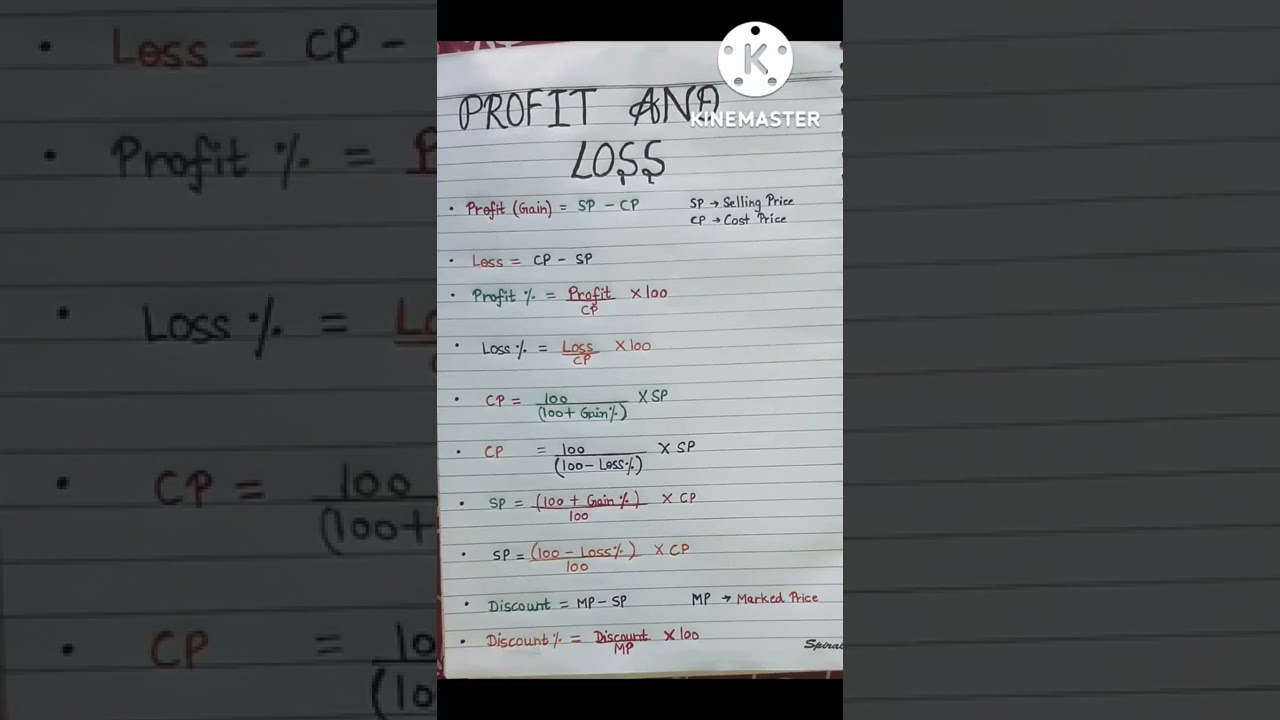 PROFIT AND
LOSS
• Profit (Gain) = SP - CP
SP → Selling Price
CP → Cost Price
• Loss = CP - SP
• Profit % = Profit/CP × 100
• Loss % = Loss/CP × 100
• CP = 100/(100 + Gain%) × SP
• CP = 100/(100 - Loss%) × SP
• SP = (100 + Gain%)/100 × CP
• SP = (100 - Loss%)/100 × CP
• Discount = MP - SP
MP → Marked Price
• Discount % = Discount/MP × 100
KINEMASTER
• Loss = CP -
• Profit % =
• Loss % =
• CP = 100
(100+
• CP =